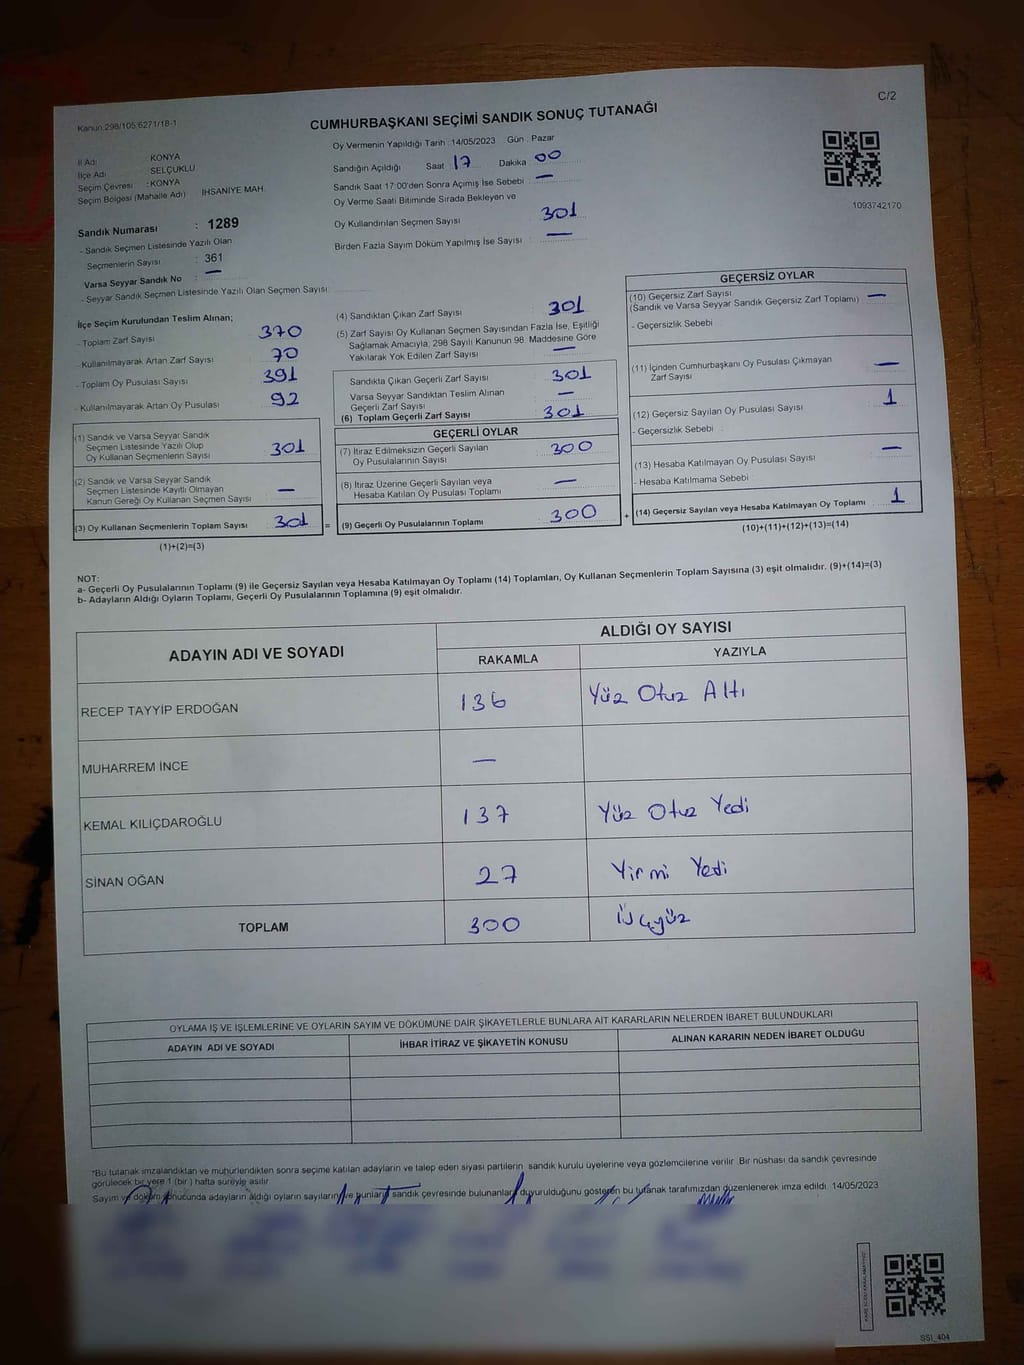 C/2
Kanun:298/105,6271/18-1
CUMHURBAŞKANI SEÇİMİ SANDIK SONUÇ TUTANAĞI
1093742170
İl Adı : KONYA
İlçe Adı : SELÇUKLU
Seçim Çevresi : KONYA
Seçim Bölgesi (Mahalle Adı) İHSANİYE MAH.
Sandık Numarası : 1289
- Sandık Seçmen Listesinde Yazılı Olan
Seçmenlerin Sayısı : 361
Varsa Seyyar Sandık No : —
- Seyyar Sandık Seçmen Listesinde Yazılı Olan Seçmen Sayısı:
Oy Vermenin Yapıldığı Tarih :14/05/2023 Gün : Pazar
Sandığın Açıldığı Saat 17 Dakika 00
Sandık Saat 17:00'den Sonra Açımış İse Sebebi : —
Oy Verme Saati Bitiminde Sırada Bekleyen ve
Oy Kullandırılan Seçmen Sayısı : 301
Birden Fazla Sayım Döküm Yapılmış İse Sayısı : —
İlçe Seçim Kurulundan Teslim Alınan;
- Toplam Zarf Sayısı : 370
- Kullanılmayarak Artan Zarf Sayısı : 70
- Toplam Oy Pusulası Sayısı : 391
- Kullanılmayarak Artan Oy Pusulası : 92
(1) Sandık ve Varsa Seyyar Sandık
Seçmen Listesinde Yazılı Olup
Oy Kullanan Seçmenlerin Sayısı : 301
(2) Sandık ve Varsa Seyyar Sandık
Seçmen Listesinde Kayıtlı Olmayan
Kanun Gereği Oy Kullanan Seçmen Sayısı : —
(3) Oy Kullanan Seçmenlerin Toplam Sayısı : 301 =
(1)+(2)=(3)
(4) Sandıktan Çıkan Zarf Sayısı : 301
(5) Zarf Sayısı Oy Kullanan Seçmen Sayısından Fazla İse, Eşitliği
Sağlamak Amacıyla, 298 Sayılı Kanunun 98. Maddesine Göre
Yakılarak Yok Edilen Zarf Sayısı : —
Sandıkta Çıkan Geçerli Zarf Sayısı : 301
Varsa Seyyar Sandıktan Teslim Alınan
Geçerli Zarf Sayısı : —
(6) Toplam Geçerli Zarf Sayısı : 301
GEÇERLİ OYLAR
(7) İtiraz Edilmeksizin Geçerli Sayılan
Oy Pusulalarının Sayısı : 300
(8) İtiraz Üzerine Geçerli Sayılan veya
Hesaba Katılan Oy Pusulası Toplamı : —
(9) Geçerli Oy Pusulalarının Toplamı : 300 +
GEÇERSİZ OYLAR
(10) Geçersiz Zarf Sayısı
(Sandık ve Varsa Seyyar Sandık Geçersiz Zarf Toplamı) : —
- Geçersizlik Sebebi :
(11) İçinden Cumhurbaşkanı Oy Pusulası Çıkmayan
Zarf Sayısı : —
(12) Geçersiz Sayılan Oy Pusulası Sayısı : 1
- Geçersizlik Sebebi :
(13) Hesaba Katılmayan Oy Pusulası Sayısı : —
- Hesaba Katılmama Sebebi :
(14) Geçersiz Sayılan veya Hesaba Katılmayan Oy Toplamı : 1
(10)+(11)+(12)+(13)=(14)
NOT:
a- Geçerli Oy Pusulalarının Toplamı (9) ile Geçersiz Sayılan veya Hesaba Katılmayan Oy Toplamı (14) Toplamları, Oy Kullanan Seçmenlerin Toplam Sayısına (3) eşit olmalıdır. (9)+(14)=(3)
b- Adayların Aldığı Oyların Toplamı, Geçerli Oy Pusulalarının Toplamına (9) eşit olmalıdır.
ADAYIN ADI VE SOYADI
ALDIĞI OY SAYISI
RAKAMLA YAZIYLA
RECEP TAYYİP ERDOĞAN 136 Yüz Otuz Altı
MUHARREM İNCE —
KEMAL KILIÇDAROĞLU 137 Yüz Otuz Yedi
SİNAN OĞAN 27 Yirmi Yedi
TOPLAM 300 Üçyüz
OYLAMA İŞ VE İŞLEMLERİNE VE OYLARIN SAYIM VE DÖKÜMÜNE DAİR ŞİKAYETLERLE BUNLARA AİT KARARLARIN NELERDEN İBARET BULUNDUKLARI
ADAYIN ADI VE SOYADI İHBAR İTİRAZ VE ŞİKAYETİN KONUSU ALINAN KARARIN NEDEN İBARET OLDUĞU
*Bu tutanak imzalandıktan ve mühürlendikten sonra seçime katılan adayların ve talep eden siyasi partilerin sandık kurulu üyelerine veya gözlemcilerine verilir. Bir nüshası da sandık çevresinde
görülecek bir yere 1 (bir) hafta süreyle asılır.
Sayım ve döküm sonucunda adayların aldığı oyların sayılarını ve bunların sandık çevresinde bulunanlara duyurulduğunu gösteren bu tutanak tarafımızdan düzenlenerek imza edildi. 14/05/2023
SSI_404